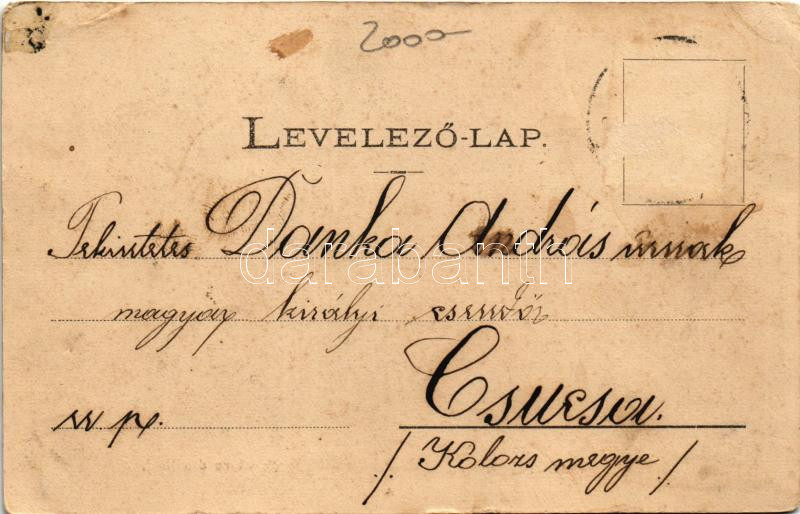 2000
LEVELEZŐ-LAP.
Tekintetes Danka András úrnak
magyar királyi csendőr
Csucsa.
u. p.
/ Kolozs megye /
darabanth